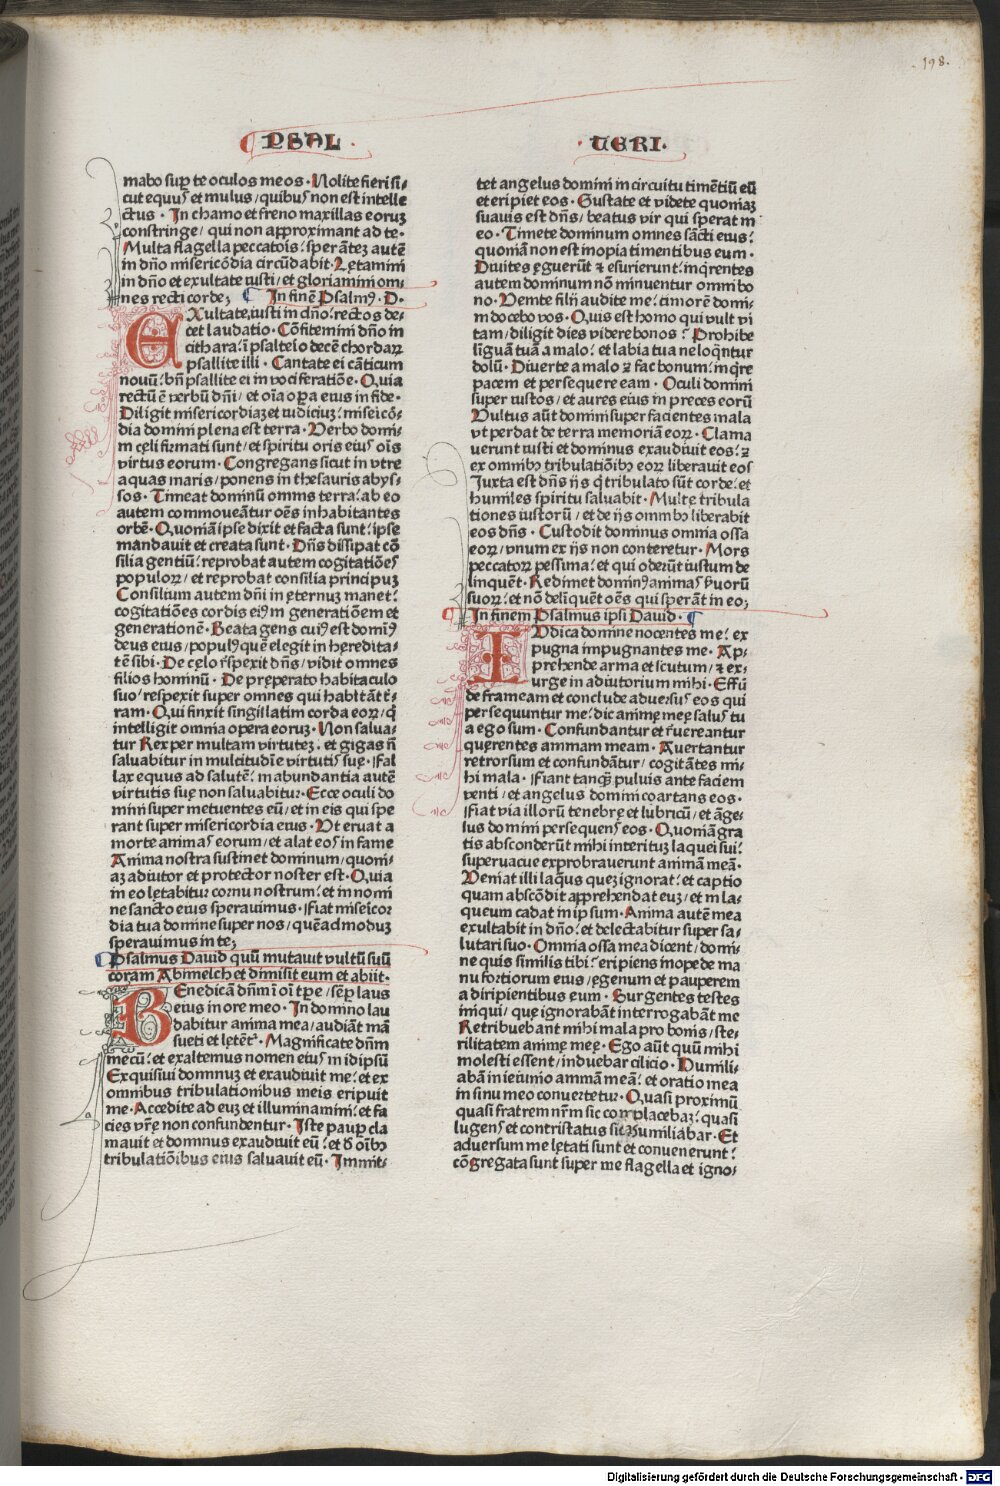 .198.
¶ PSAL .
· TERI .
mabo suꝑ te oculos meos · Nolite fieri si/
cut equuꝰ et mulus / quibuꝰ non est intelle
ctus · In chamo et freno maxillas eoruꝫ
constringe / qui non approximant ad te ·
Multa flagella peccatoris: sperātez autē
in dño misericōdia circūdabit · Lętamini
in dño et exultate iusti / et gloriamini om/
nes recti corde; ¶ In finē Psalmꝰ · D ·
EXultate, iusti in dño: rectos de/
cet laudatio · Cōfitemini dño in
cithara: ī psalterio decē chordaꝝ
psallite illi · Cantate ei cāticum
nouū: bñ psallite ei in vociferatiōe · Quia
rectū ē verbū dñi / et oīa oꝑa eius in fide ·
Diligit misericordiaꝫ et iudiciuꝫ: miseicō/
dia domini plena est terra · Verbo domi/
ni cęli firmati sunt / et spiritu oris eiuꝰ oīs
virtus eorum · Congregans sicut in vtre
aquas maris / ponens in thesauris abys/
sos · Timeat dominū omnis terra: ab eo
autem commoueātur oēs inhabitantes
orbē · Quoniā ipse dixit et facta sunt: ipse
mandauit et creata sunt · Dñs dissipat cō
silia gentiū: reprobat autem cogitatiōes
populoꝝ / et reprobat consilia principuꝫ
Consilium autem dñi in ęternuꝫ manet:
cogitatiōes cordis eiꝰ in generatiōem et
generationē · Beata gens cuiꝰ est domīꝰ
deus eius / populꝰ quē elegit in heredita/
tē sibi · De cęlo r̄spexit dñs / vidit omnes
filios hominū · De pręperato habitaculo
suo / respexit super omnes qui habitāt t̄r/
ram · Qui finxit singillatim corda eoꝝ / q̄
intelligit omnia opera eoruꝫ · Non salua/
tur Rex per multam virtuteꝫ: et gigas ñ
saluabitur in multitudīe virtutis suę · Fal
lax equus ad salutē: in abundantia autē
virtutis suę non saluabitur · Ecce oculi do
mini super metuentes eū / et in eis qui spe
rant super misericordia eius · Vt eruat a
morte animas eorum / et alat eos in fame
Anima nostra sustinet dominum / quoni/
aꝫ adiutor et protector noster est · Quia
in eo lętabitur cor nostrum: et in nomi
ne sancto eius sperauimus · Fiat miseicor
dia tua domine super nos / quēadmoduꝫ
sperauimus in te;
¶ Psalmus Dauid quū mutauit vultū suū
coram Abimelch et dimisit eum et abiit ·
BEnedicā dñm ī oī tꝑe / sēꝑ laus
eius in ore meo · In domino lau
dabitur anima mea / audiāt mā
sueti et lętēt᷑ · Magnificate dñm
mecū: et exaltemus nomen eiuꝰ in idipsū
Exquisiui dominuꝫ et exaudiuit me: et ex
omnibus tribulationibus meis eripuit
me · Accedite ad euꝫ et illuminamini: et fa
cies vr̄ę non confundentur · Iste pauꝑ cla
mauit et dominus exaudiuit eū: et ð oībꝫ
tribulatiōibus eius saluauit eū · Immit/
tet angelus domini in circuitu timētiū eū
et eripiet eos · Gustate et videte quoniaꝫ
suauis est dñs / beatus vir qui sperat in
eo · Timete dominum omnes sācti eius:
quoniā non est inopia timentibus eum ·
Diuites ęguerūt ⁊ esurierunt: inq̄rentes
autem dominum nōn minuentur omni bo
no · Venite filij audite me: timorē domi/
ni docebo vos · Quis est homo qui vult vi
tam / diligit dies videre bonos ? Prohibe
līguā tuā a malo: et labia tua ne loq̄ntur
dolū · Diuerte a malo ⁊ fac bonum: inq̄re
pacem et persequere eam · Oculi domini
super iustos / et aures eius in preces eorū
Vultus aūt domini super facientes mala
vt perdat de terra memoriā eoꝝ · Clama
uerunt iusti et dominus exaudiuit eos: ⁊
ex omnibꝫ tribulatiōibꝫ eoꝝ liberauit eos
Juxta est dñs ijs q̄ tribulato sūt corde: et
humiles spiritu saluabit · Multę tribula
tiones iustorū / et de ijs omnibꝫ liberabit
eos dñs · Custodit dominus omnia ossa
eoꝝ / vnum ex ijs non conteretur · Mors
peccatoꝝ pessima: et qui oderūt iustum de
linquēt · Redimet dominꝰ animas ẜuorū
suoꝝ / et nō deliquēt oēs qui sperāt in eo;
¶ In finem Psalmus ipsi Dauid · ¶
IUdica domine nocentes me: ex
pugna impugnantes me · Ap/
prehende arma et scutum / ⁊ ex/
urge in adiutorium mihi · Effū
de frameam et conclude aduersuꝰ eos qui
persequuntur me: dic animę meę saluꝰ tu
a ego sum · Confundantur et r̄uereantur
quęrentes animam meam · Auertantur
retrorsum et confundātur / cogitātes mi/
hi mala · Fiant tanq̄ꝫ puluis ante faciem
venti / et angelus domini coartans eos ·
Fiat via illorū tenebrę et lubricū / et āge/
lus domini persequens eos · Quoniā gra
tis absconderūt mihi interituꝫ laquei sui:
superuacue exprobrauerunt animā meā ·
Veniat illi laq̄us quez ignorat: et captio
quam abscōdit apprehendat euꝫ / et in la/
queum cadat in ipsum · Anima autē mea
exultabit in dño: et delectabitur super sa/
lutari suo · Omnia ossa mea dicent / domi/
ne quis similis tibi: eripiens inope de ma
nu fortiorum eius / ęgenum et pauperem
a diripientibus eum · Surgentes testes
iniqui / quę ignorabāt interrogabāt me
Retribuebant mihi mala pro bonis / ste/
rilitatem animę meę · Ego aūt quū mihi
molesti essent / induebar cilicio · Humili/
abā in ieiunio animā meā: et oratio mea
in sinu meo conuertetur · Quasi proximū
quasi fratrem nr̄m sic complacebaꝫ: quasi
lugens et contristatus sic humiliabar · Et
aduersum me lętati sunt et conuenerunt:
cōgregata sunt super me flagella et igno/
Digitalisierung gefördert durch die Deutsche Forschungsgemeinschaft · DFG